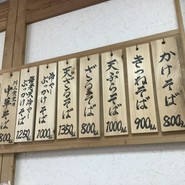 かけそば
800円
きつねそば
900円
天ぷらそば
1000円
ざるそば
800円
天ざるそば
1350円
冷やし
ぶっかけそば
1000円
冷やし
ぶっかけそば
1250円
中華そば
800円